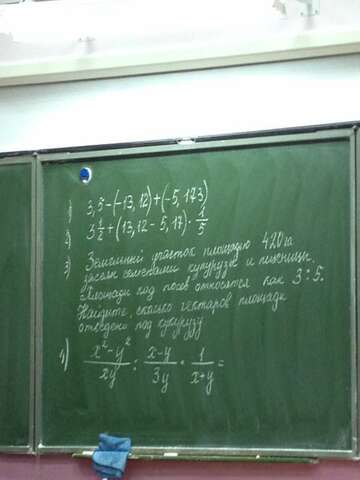 1) 3,5-(-13,12)+(-5,173)
2) 3 1/2 + (13,12 - 5,17) · 1/5
3) Земельный участок площадью 420 га
засеян семенами кукурузы и пшеницы.
Площади под посев относятся как 3:5.
Найдите, сколько гектаров площади
отведено под кукурузу
4) (x²-y²)/(xy) : (x-y)/(3y) · 1/(x+y) =